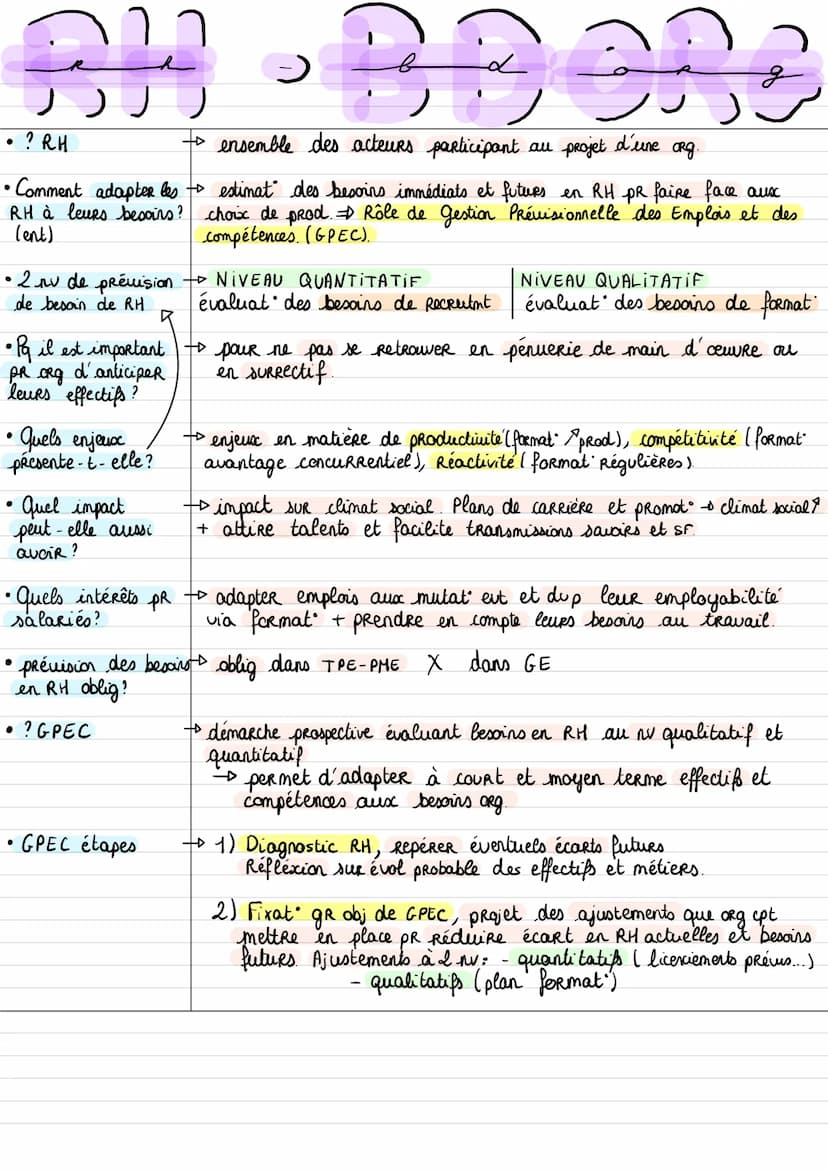 RH → BD ORG
• ? RH → ensemble des acteurs participant au projet d'une org.
• Comment adapter les RH à leurs besoins? (ent) → estimat° des besoins immédiats et futurs en RH pR faire face aux
choix de prod. ⇒ Rôle de Gestion Prévisionnelle des Emplois et des
compétences. (GPEC).
• 2 nv de prévision
de besoin de RH
→ NIVEAU QUANTITATIF
évaluat° des besoins de Recrutmt
NIVEAU QUALITATIF
évaluat° des besoins de format°
• Pq il est important
pR org d'anticiper
leurs effectifs?
→ pour ne pas se retrouver en pénuerie de main d'œuvre ou
en surrectif.
• Quels enjeux
présente-t-elle?
→ enjeux en matière de productivité (format° ↗ prod), compétitivité (format°
avantage concurrentiel), Réactivité (format° régulières).
• Quel impact
peut-elle aussi
avoir?
→ impact sur climat social. Plans de carrière et promot° → climat social ↗
+ attire talents et facilite transmissions savoirs et SF.
• Quels intérêts pR
salariés?
→ adapter emplois aux mutat° evt et dvp leur employabilité
via format° + prendre en compte leurs besoins au travail.
• prévision des besoins
en RH oblig?
→ oblig dans TPE-PME X dans GE
• ? GPEC
→ démarche prospective évaluant besoins en RH au nv qualitatif et
quantitatif
→ permet d'adapter à court et moyen terme effectif et
compétences aux besoins org.
• GPEC étapes
→ 1) Diagnostic RH, repérer éventuels écarts futurs
Réfléxion sur évol probable des effectifs et métiers.
2) Fixat° gR obj de GPEC, projet des ajustements que org cpt
mettre en place pR réduire écart en RH actuelles et besoins
futurs. Ajustements à 2 nv: - quantitatifs (licenciements prévus...)
- qualitatifs (plan format°)